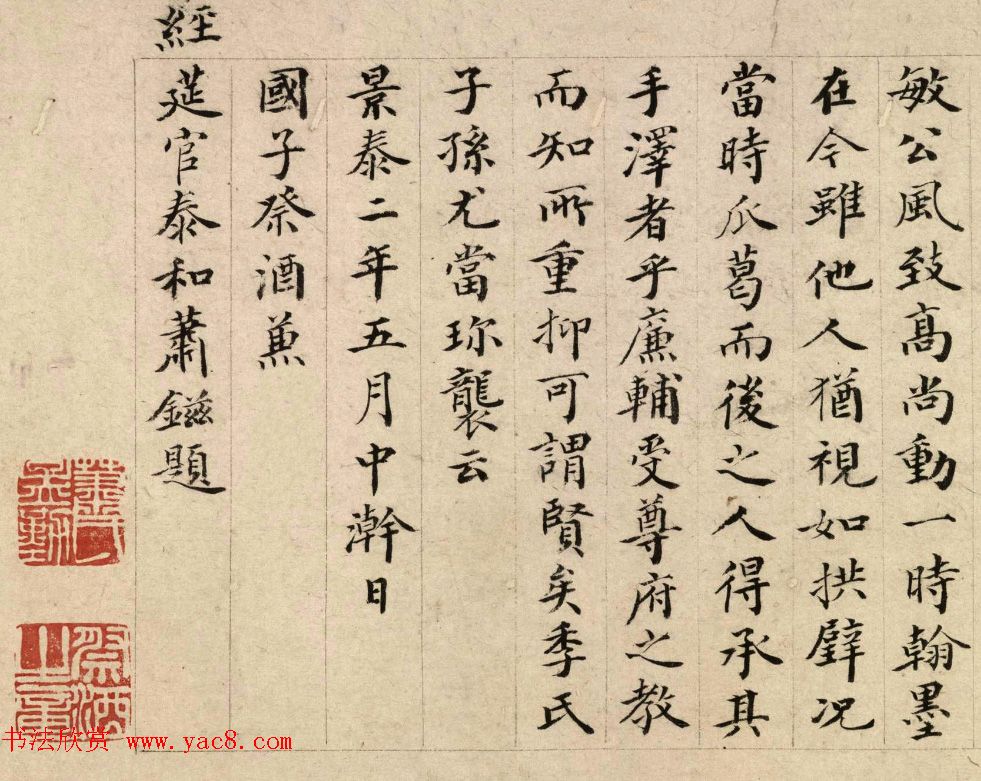 敏公風致高尚動一時翰墨
在今雖他人猶視如拱璧况
當時瓜葛而後之人得承其
手澤者乎廉輔受尊府之教
而知所重抑可謂賢矣季氏
子孫尤當珎襲云
景泰二年五月中澣日
國子祭酒兼
經
筵官泰和蕭鎡題
书法欣赏 www.yac8.com